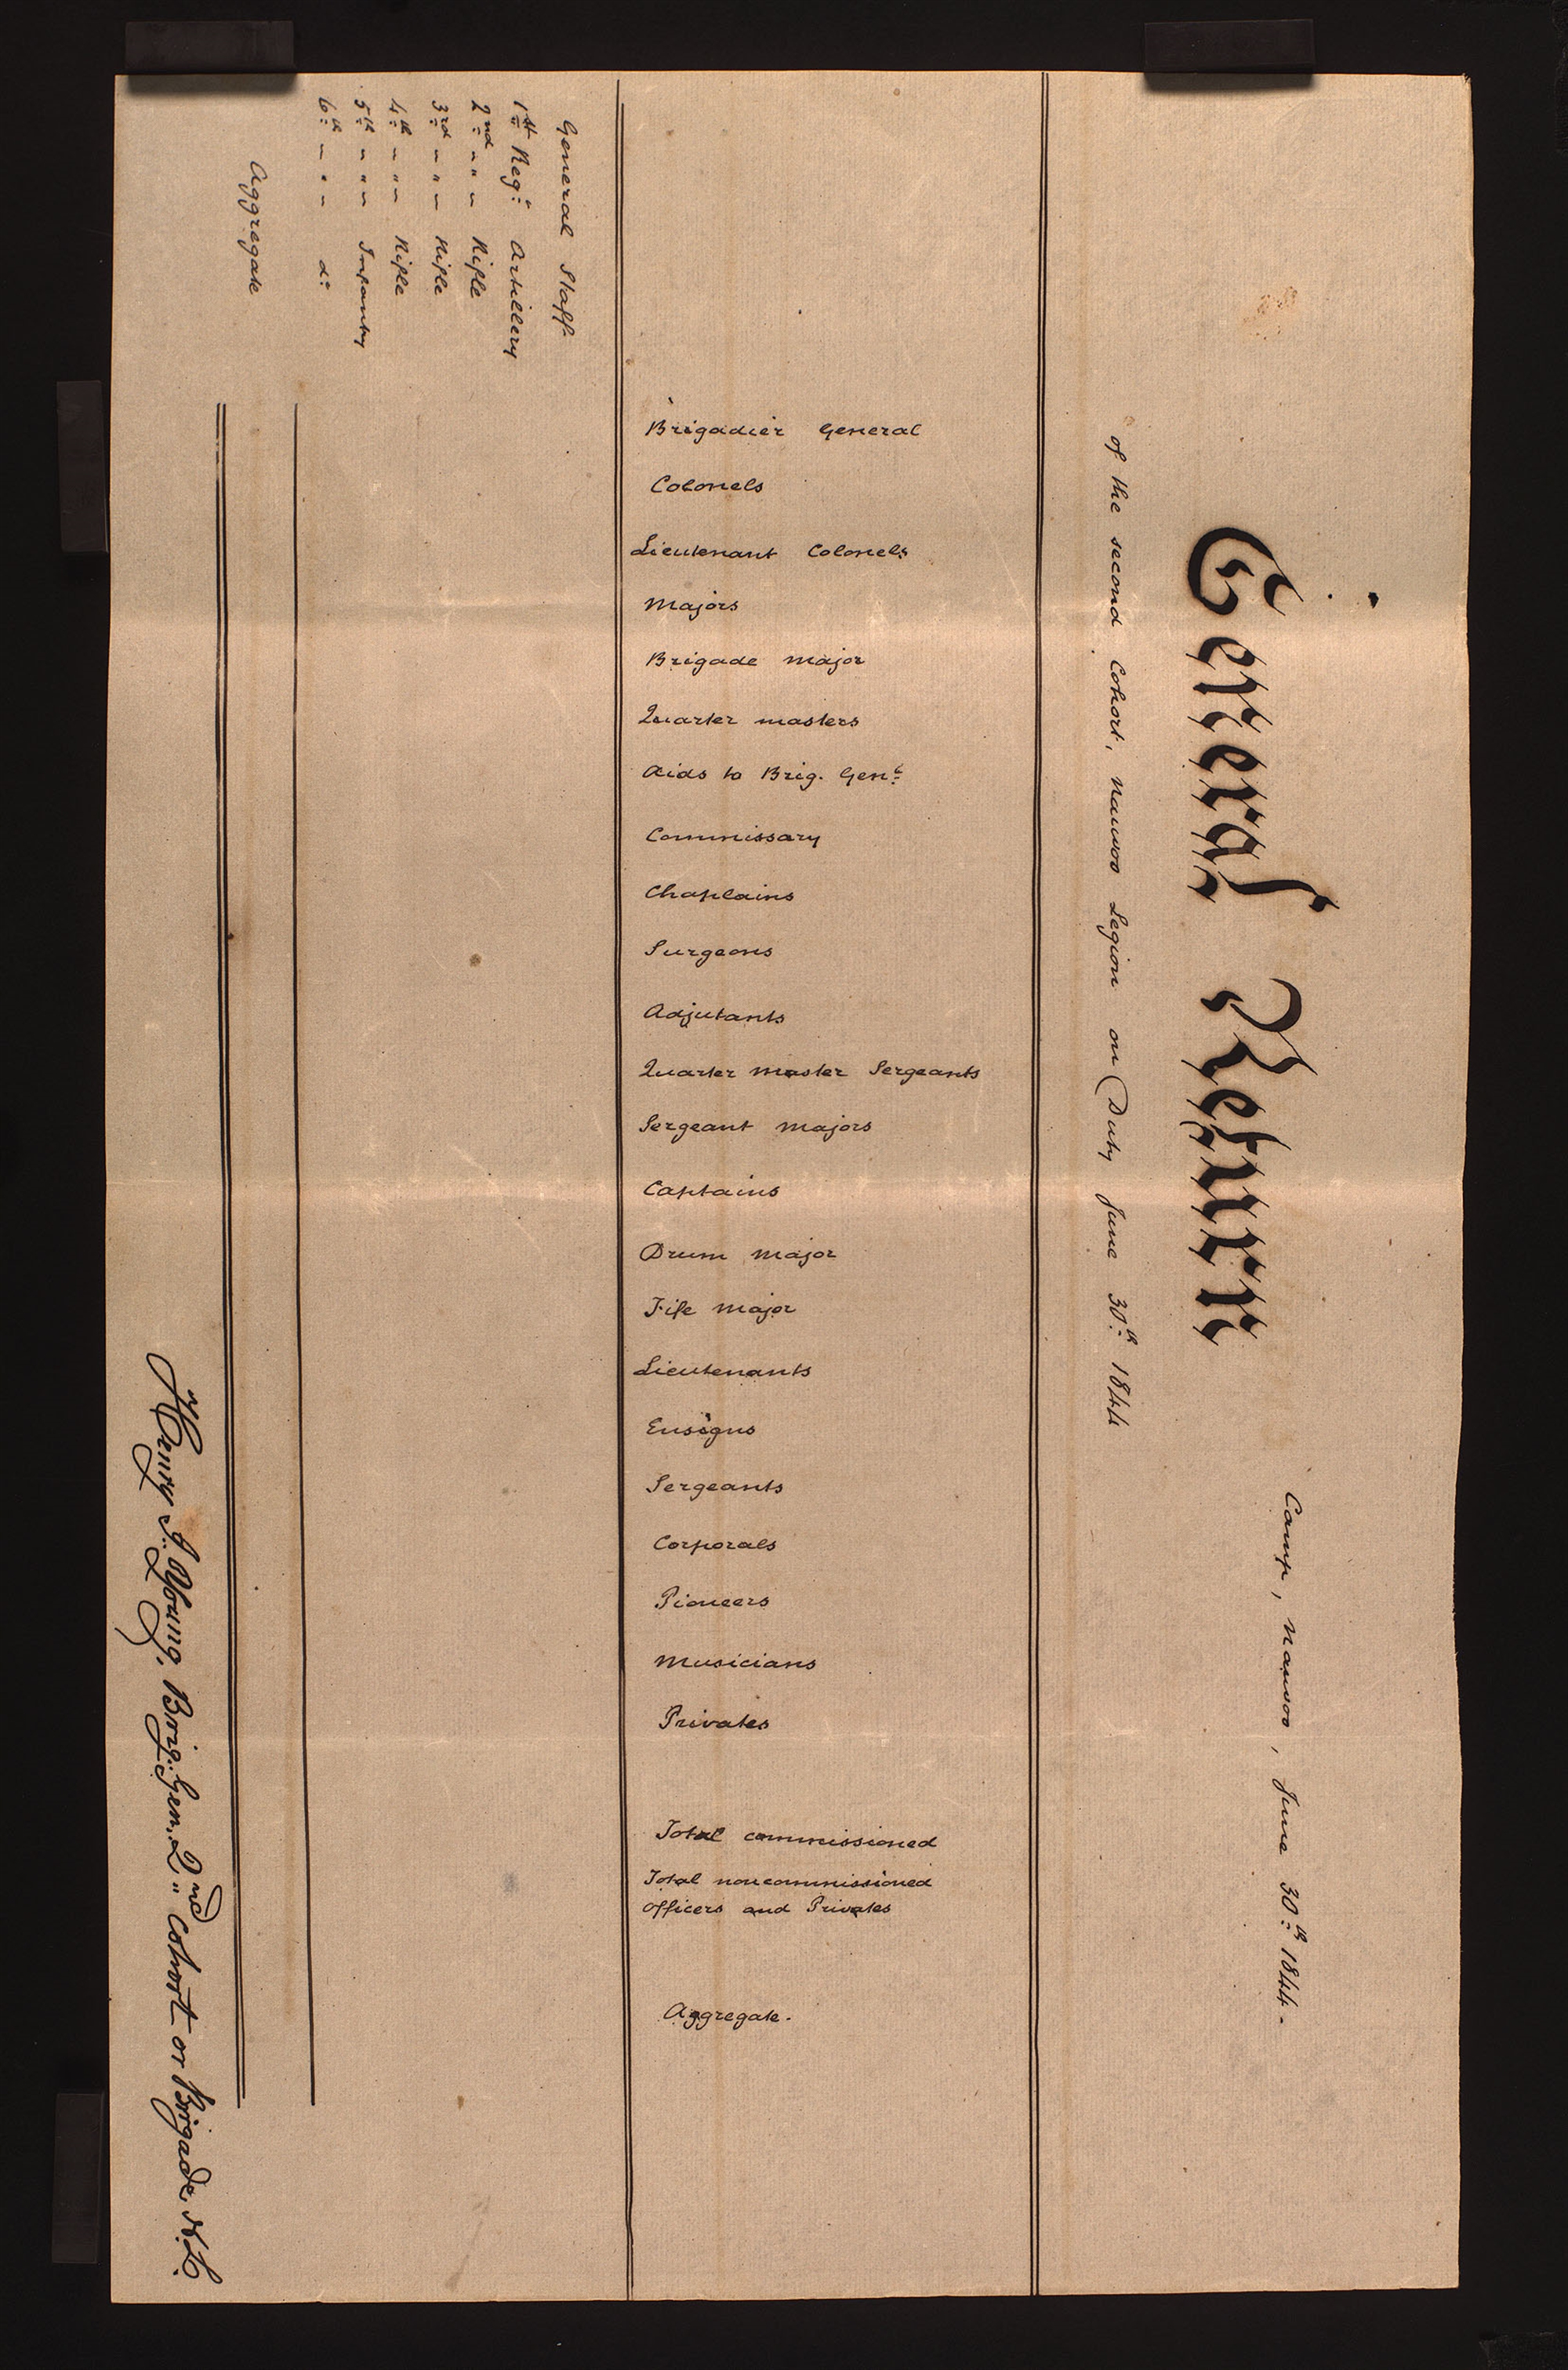 General Return
Camp, Nauvoo, June 30th 1844.
of the second Cohort, Nauvoo Legion on Duty June 30th 1844
Brigadier General
Colonels
Lieutenant Colonels
Majors
Brigade Major
Quarter masters
Aids to Brig. Genl
Commissary
Chaplains
Surgeons
Adjutants
Quarter Master Sergeants
Sergeant Majors
Captains
Drum Major
Fife Major
Lieutenants
Ensigns
Sergeants
Corporals
Pioneers
Musicians
Privates
Total commissioned
Total noncommissioned
officers and Privates
Aggregate.
General Staff
1st Regt Artillery
2nd " " " Rifle
3rd " " " Rifle
4th " " " Rifle
5th " " " Infantry
6th " " " do
Aggregate
Henry J. Young, Brig. Gen. 2nd " Cohort or Brigade N.L.